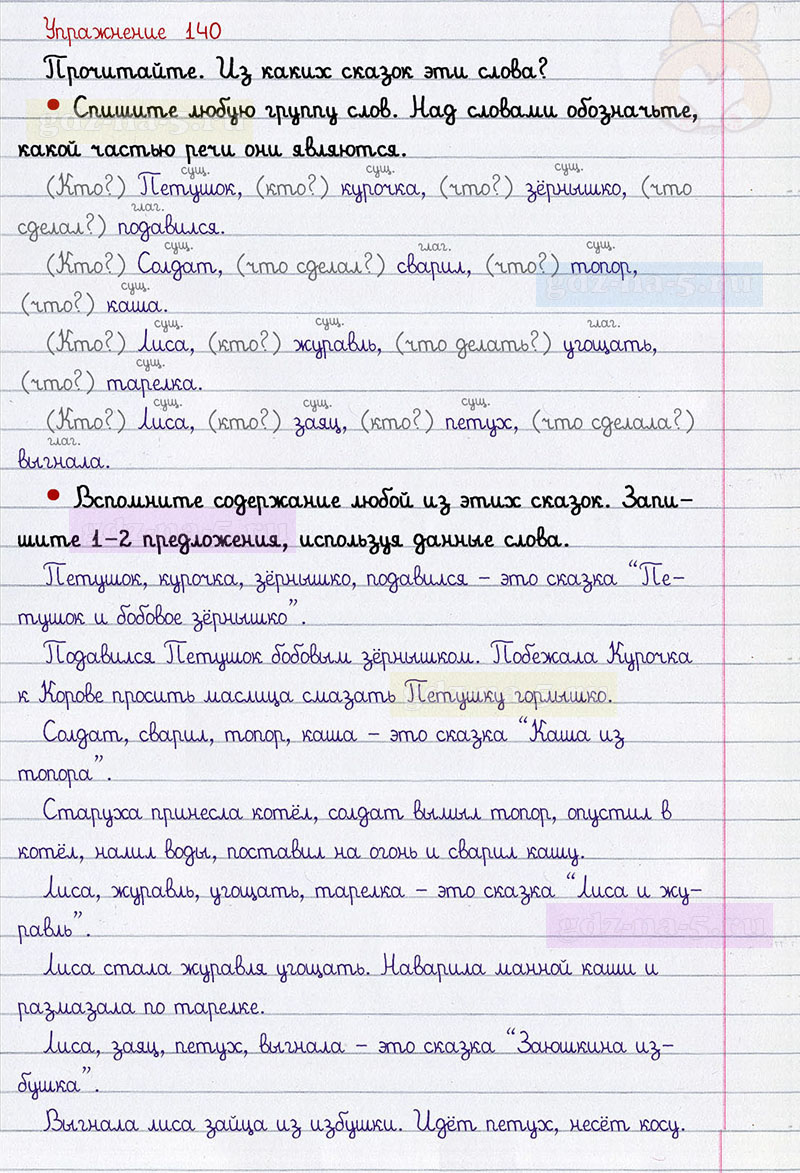 Упражнение 140
Прочитайте. Из каких сказок эти слова?
• Спишите любую группу слов. Над словами обозначьте,
gdz-na-5.ru
какой частью речи они являются.
сущ. сущ. сущ.
(Кто?) Петушок, (кто?) курочка, (что?) зёрнышко, (что
глаг.
сделал?) подавился.
сущ. глаг. сущ.
(Кто?) Солдат, (что сделал?) сварил, (что?) топор,
gdz-na-5.ru
сущ.
(что?) каша.
сущ. сущ. глаг.
(Кто?) Лиса, (кто?) журавль, (что делать?) угощать,
сущ.
(что?) тарелка.
сущ. сущ. сущ.
(Кто?) Лиса, (кто?) заяц, (кто?) петух, (что сделала?)
глаг.
выгнала.
• Вспомните содержание любой из этих сказок. Запи-
gdz-na-5.ru
шите 1-2 предложения, используя данные слова.
Петушок, курочка, зёрнышко, подавился – это сказка “Пе-
тушок и бобовое зёрнышко”.
Подавился Петушок бобовым зёрнышком. Побежала Курочка
к Корове просить маслица смазать Петушку горлышко.
gdz-na-5.ru
Солдат, сварил, топор, каша – это сказка “Каша из
топора”.
Старуха принесла котёл, солдат вымыл топор, опустил в
котёл, налил воды, поставил на огонь и сварил кашу.
Лиса, журавль, угощать, тарелка – это сказка “Лиса и жу-
равль”.
gdz-na-5.ru
Лиса стала журавля угощать. Наварила манной каши и
размазала по тарелке.
Лиса, заяц, петух, выгнала – это сказка “Заюшкина из-
бушка”.
Выгнала лиса зайца из избушки. Идёт петух, несёт косу.